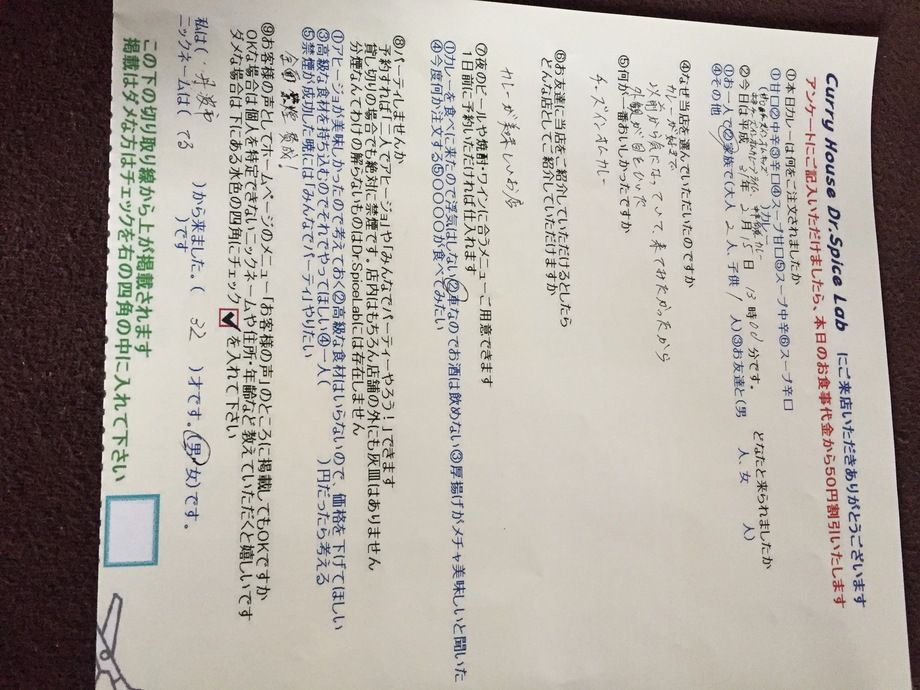 Curry House Dr.Spice Lab にご来店いただきありがとうございます
アンケートにご記入いただけましたら、本日のお食事代金から50円割引いたします
①本日カレーは何をご注文されましたか
①甘口②中辛③辛口④スープ甘口⑤スープ中辛⑥スープ辛口
②今日は平成 31年 2月15日 13時00分です。 どなたと来られましたか
①お一人で②家族で(大人 2 人、子供 1 人)③お友達と(男 人、女 人)
④その他
④なぜ当店を選んでいただいたのですか
カレーが好きで
以前から気になっていて来てみたかったから
外観が目をひいた
⑤何が一番おいしかったですか
チーズインオムカレー
⑥お友達に当店をご紹介していただけるとしたら
どんな店としてご紹介していただけますか
カレーが美味しいお店
⑦夜のビールや焼酎・ワインに合うメニューご用意できます
1日前にご予約いただければ仕入れます
①カレーを食べに来たので浮気はしない②車なのでお酒は飲めない③厚揚げがメチャ美味しいと聞いた
④今度何か注文する⑤〇〇〇〇が食べてみたい
⑧パーティしませんか
予約すれば「二人でアヒージョ」や「みんなでパーティーやろう!」できます
貸し切りの場合でも絶対に禁煙です。店内はもちろん店舗の外にも灰皿はありません
分煙なんてわけの解らないものはDr.SpiceLabには存在しません
①アヒージョが美味しかったので考えておく②高級な食材はいらないので、価格を下げてほしい
③高級な食材を持ち込むのでそれでやってほしい④一人( )円だったら考える
⑤禁煙が成功した時には「みんなでパーティ」やりたい
全面禁煙 賛成!
⑨お客様の声としてホームページのメニュー「お客様の声」のところに掲載してもOKですか
OKな場合は個人を特定できないニックネームや住所・年齢など教えていただくと嬉しいです
ダメな場合は下にある水色の四角にチェック✓を入れて下さい
私は( )から来ました。( 32 )才です。(男・女)です。
ニックネームは( てる )です
この下の切り取り線から上が掲載されます
掲載はダメな方はチェックを右の四角の中に入れて下さい